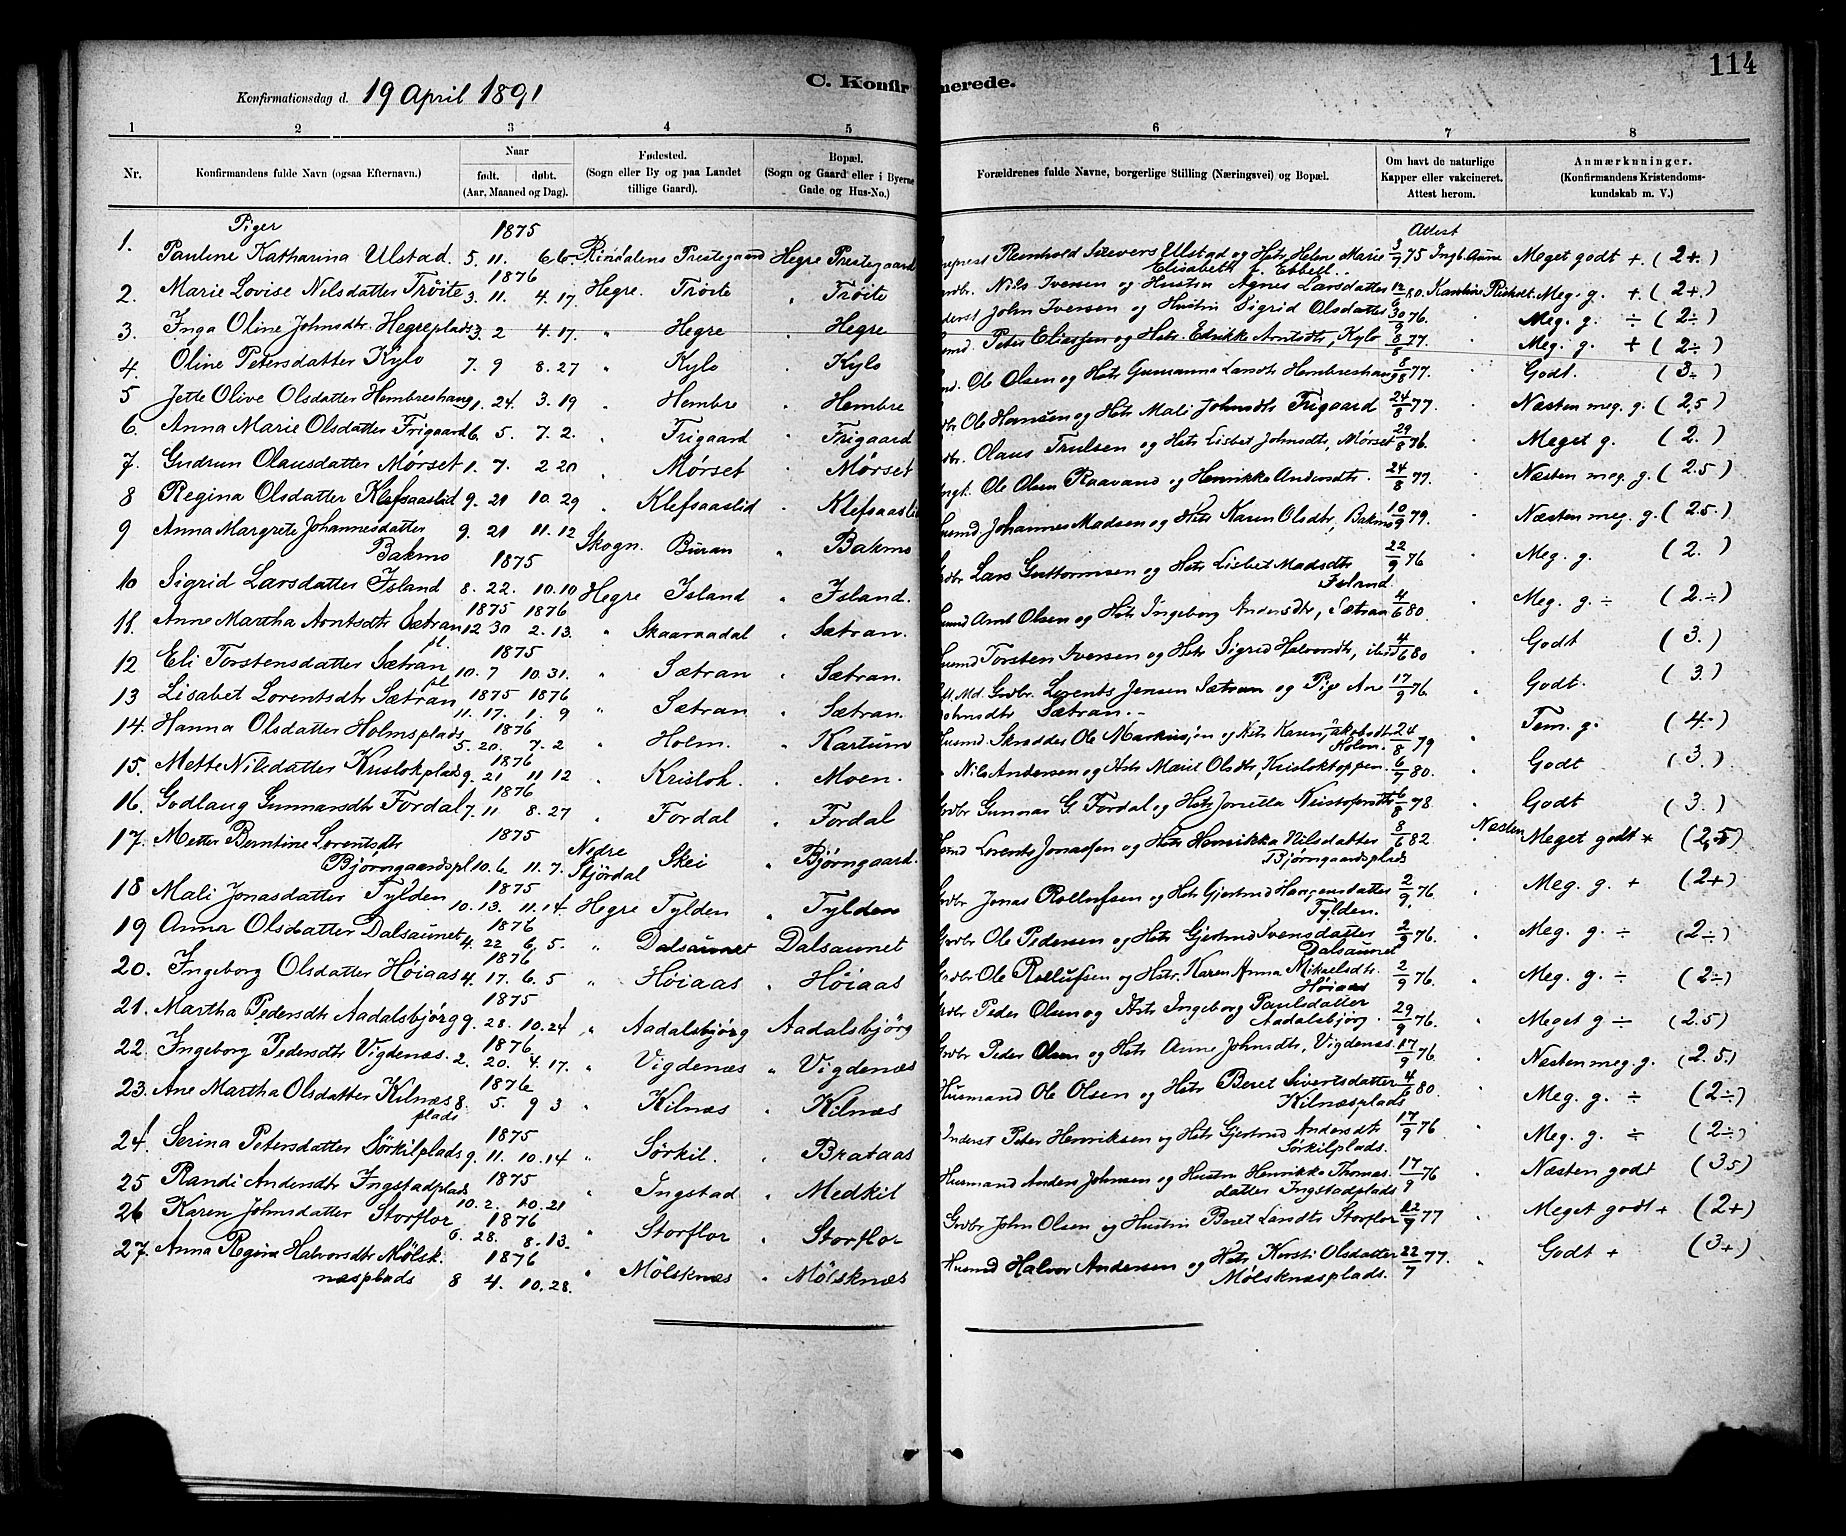 114
Konfirmationsdag d. 19 April 1891
C. Konfir merede.
1 2 3 4 5 6 7 8
Nr. Konfirmandens fulde Navn (ogsaa Efternavn). Naar født. døbt. (Aar, Maaned og Dag). Fødested. (Sogn eller By og paa Landet tillige Gaard). Bopæl. (Sogn og Gaard eller i Byerne Gade og Hus-No.) Forældrenes fulde Navne, borgerlige Stilling (Næringsvei) og Bopæl. Om havt de naturlige Kapper eller vakcineret. Attest herom. Anmærkninger. (Konfirmandens Kristendomskundskab m. V.)
Piger 1875 Attest
1. Pauline Katharina Ulstad. 5. 11. 6.6. Rindalens Prestegaard Hegre Prestegaard Reinhold Sievers Ullstad og Hstr. Helen Marie Elisabeth f. Ebbell. 3/9 75 Ingb. Aune Meget godt +. (2+.)
1876
2. Marie Lovise Nilsdatter Trøite 3. 11. 4. 17. Hegre. Trøite " Trøite Nils Ivensen og Hustru Agnes Larsdatter 12/6 80. Karoline Richelt. Meg. g. + (2+.)
3. Inga Oline Johnsdtr. Hegreplads 3. 2 4. 17. " Hegre " Hegre John Iversen og Hustru Sigrid Olsdatter 30/9 76. " Meg. g. ÷ (2÷)
4. Oline Petersdatter Kylo 7. 9 8. 27 " Kylo " Kylo Peter Eliassen og Hstr. Edrikke Arntsdtr, Kylo 8/8 77. " Meg. g. + (2÷)
5 Jette Olive Olsdatter Hembreshaug 1. 24. 3. 19 " Hembre " Hembre Ole Olsen og Hstr Gurianna Larsdtr Hembreshaug 8/8 77. " Godt. (3÷)
6. Anna Marie Olsdatter Frigaard 6. 5. 7. 2. " Frigaard " Frigaard Ole Hansen og Hstr Mali Johnsdtr Frigaard 24/8 77. " Næsten meg. g. (2,5)
7. Gudrun Olausdatter Mørset 1. 7. 2 20 " Mørset " Mørset Olaus Trulsen og Hstr Lisbet Johnsdtr, Mørset 29/8 76. " Meget g. (2.)
8 Regina Olsdatter Klefsaaslid 9. 21 10. 29 " Klefsaaslid " Klefsaaslid Ole Olsen Raavand og Henrikka Andersdtr. 24/8 77. " Næsten meg. g. (2.5)
9 Anna Margrete Johannesdatter Bakmo 9. 21 11. 12 Skogn. Buran " Bakmo Johannes Madsen og Hstr Karen Olsdtr, Bakmo 10/9 79. " Næsten meg. g. (2.5.)
1875
10 Sigrid Larsdatter Island 8. 22. 10. 10 Hegre Island " Island. Lars Guttormsen og Hstr Lisbet Madsdtr Island. 22/9 76 " Meg. g. (2.)
1875 1876
11. Anne Martha Arntsdtr Sætran pl. 12 30 2. 13. " Skaaraadal " Sætran. Arnt Olsen og Hstr Ingeborg Andersdtr, Sætran 4/6 80. " Meg. g. ÷ (2.÷)
1875
12 Eli Torstensdatter Sætran pl. 10. 7 10. 31. " Sætran " Sætran. Torsten Iversen og Hstr Sigrid Halvordtr, ibid 4/6 80 " Godt (3.)
1875 1876
13 Lisabet Lorentsdtr Sætran 11. 17. 1. 9 " Sætran " Sætran. Grdbr. Lorents Jensen Sætran og Pige Ane Johnsdtr Sætran. 17/9 76. " Godt. (3.)
1876
14. Hanna Olsdatter Holmsplads 5. 20. 7. 2 " Holm. " Kartum Husmd Skrædder Ole Markusjøn og Hstr Karen Jakobsdtr Holm. 24/8 79 " Tem. g. (4.)
1876
15. Mette Nilsdatter Krislokplads 9. 21 11. 12 " Krislok. " Moen. Nils Andersen og Hstr Marit Olsdtr, Krisloktoppen 6/7 80. " Godt (3.)
1876
16. Godlaug Gunnarsdtr Fordal 7. 11 8. 27 " Fordal " Fordal Grdbr Gunnar G. Fordal og Hstr Jonetta Kristofersdtr 6/8 78 " Godt (3.)
1875
17. Mette Berntine Lorentsdtr Bjørngaardspl 10. 6. 11. 7. Nedre Stjørdal Skei " Bjørngaard. Lorents Jonassen og Hstr Henrikka Nilsdatter Bjørngaardsplads 8/6 82 " Næsten Meget godt * (2,5)
1875
18 Mali Jonasdatter Fylden 10. 13. 11. 14. Hegre Fylden " Fylden Grdbr Jonas Rollufsen og Hstr Gjertrud Haagensdatter Fylden. 2/9 76. " Meg. g. + (2+)
1876
19 Anna Olsdatter Dalsaunet 4. 22 6. 5. " Dalsaunet Dalsaunet Grdbr Ole Pedersen og Hstr Gjertrud Svensdatter Dalsaunet 2/9 76. " Meg. g. ÷ (2÷)
1876
20. Ingeborg Olsdatter Høiaas 4. 17. 6. 5 " Høiaas " Høiaas Grdbr Ole Rollufsen og Hstr. Karen Anna Mikaelsdtr. Høiaas 2/9 76. " Meg. g. ÷ (2÷)
1875
21. Martha Pedersdtr Aadalsbjørg 9. 28. 10. 24 " Aadalsbjørg Aadalsbjørg Grdbr Peder Olsen og Hstr Ingeborg Paulsdatter Aadalsbjørg. 29/9 76. " Meget g ÷ (2.5)
1876
22. Ingeborg Pedersdtr Vigdenæs. 2. 20. 4. 17. " Vigdenæs " Vigdenæs Grdbr Peder Olsen og Hstr Anne Johnsdtr, Vigdenæs 17/9 76 " Næsten meg. g. (2.5.)
1876
23. Ane Martha Olsdatter Kilnæs plads 8. 5. 9 3 " Kilnæs " Kilnæs Husmand Ole Olsen og Hstr Beret Sivertsdatter Kilnæsplads 4/6 80 " Meg. g. ÷ (2÷)
1875
24. Serina Petersdatter Sørkilplads 9. 11. 10. 14 " Sørkil. " Brataas Inderst Peter Henriksen og Hstr Gjertrud Andersdtr Sørkilplads. 17/9 76 " Meg. g. ÷ (2÷)
1875
25 Randi Andersdtr Ingstadplads 10. 2. 10. 21 " Ingstad " Medkil Husmand Anders Johnsen og Hustru Henrikke Thomasdatter Ingstadplads 17/9 76 " Næsten godt (35)
26 Karen Johnsdatter Storflor 1876 6. 28. 8. 13. " Storflor " Storflor Grdbr John Olsen og Hustru Beret Larsdtr Storflor 12/9 77 " Meget godt + (2+)
27. Anna Regina Halvorsdtr Mølsknæsplads 1876 8 4. 10. 28. " Mølsknæs " Mølsknæs Husmd Halvor Andersen og Hstr Kersti Olsdatter Mølsknæsplads. 22/7 77. " Godt + (3+)